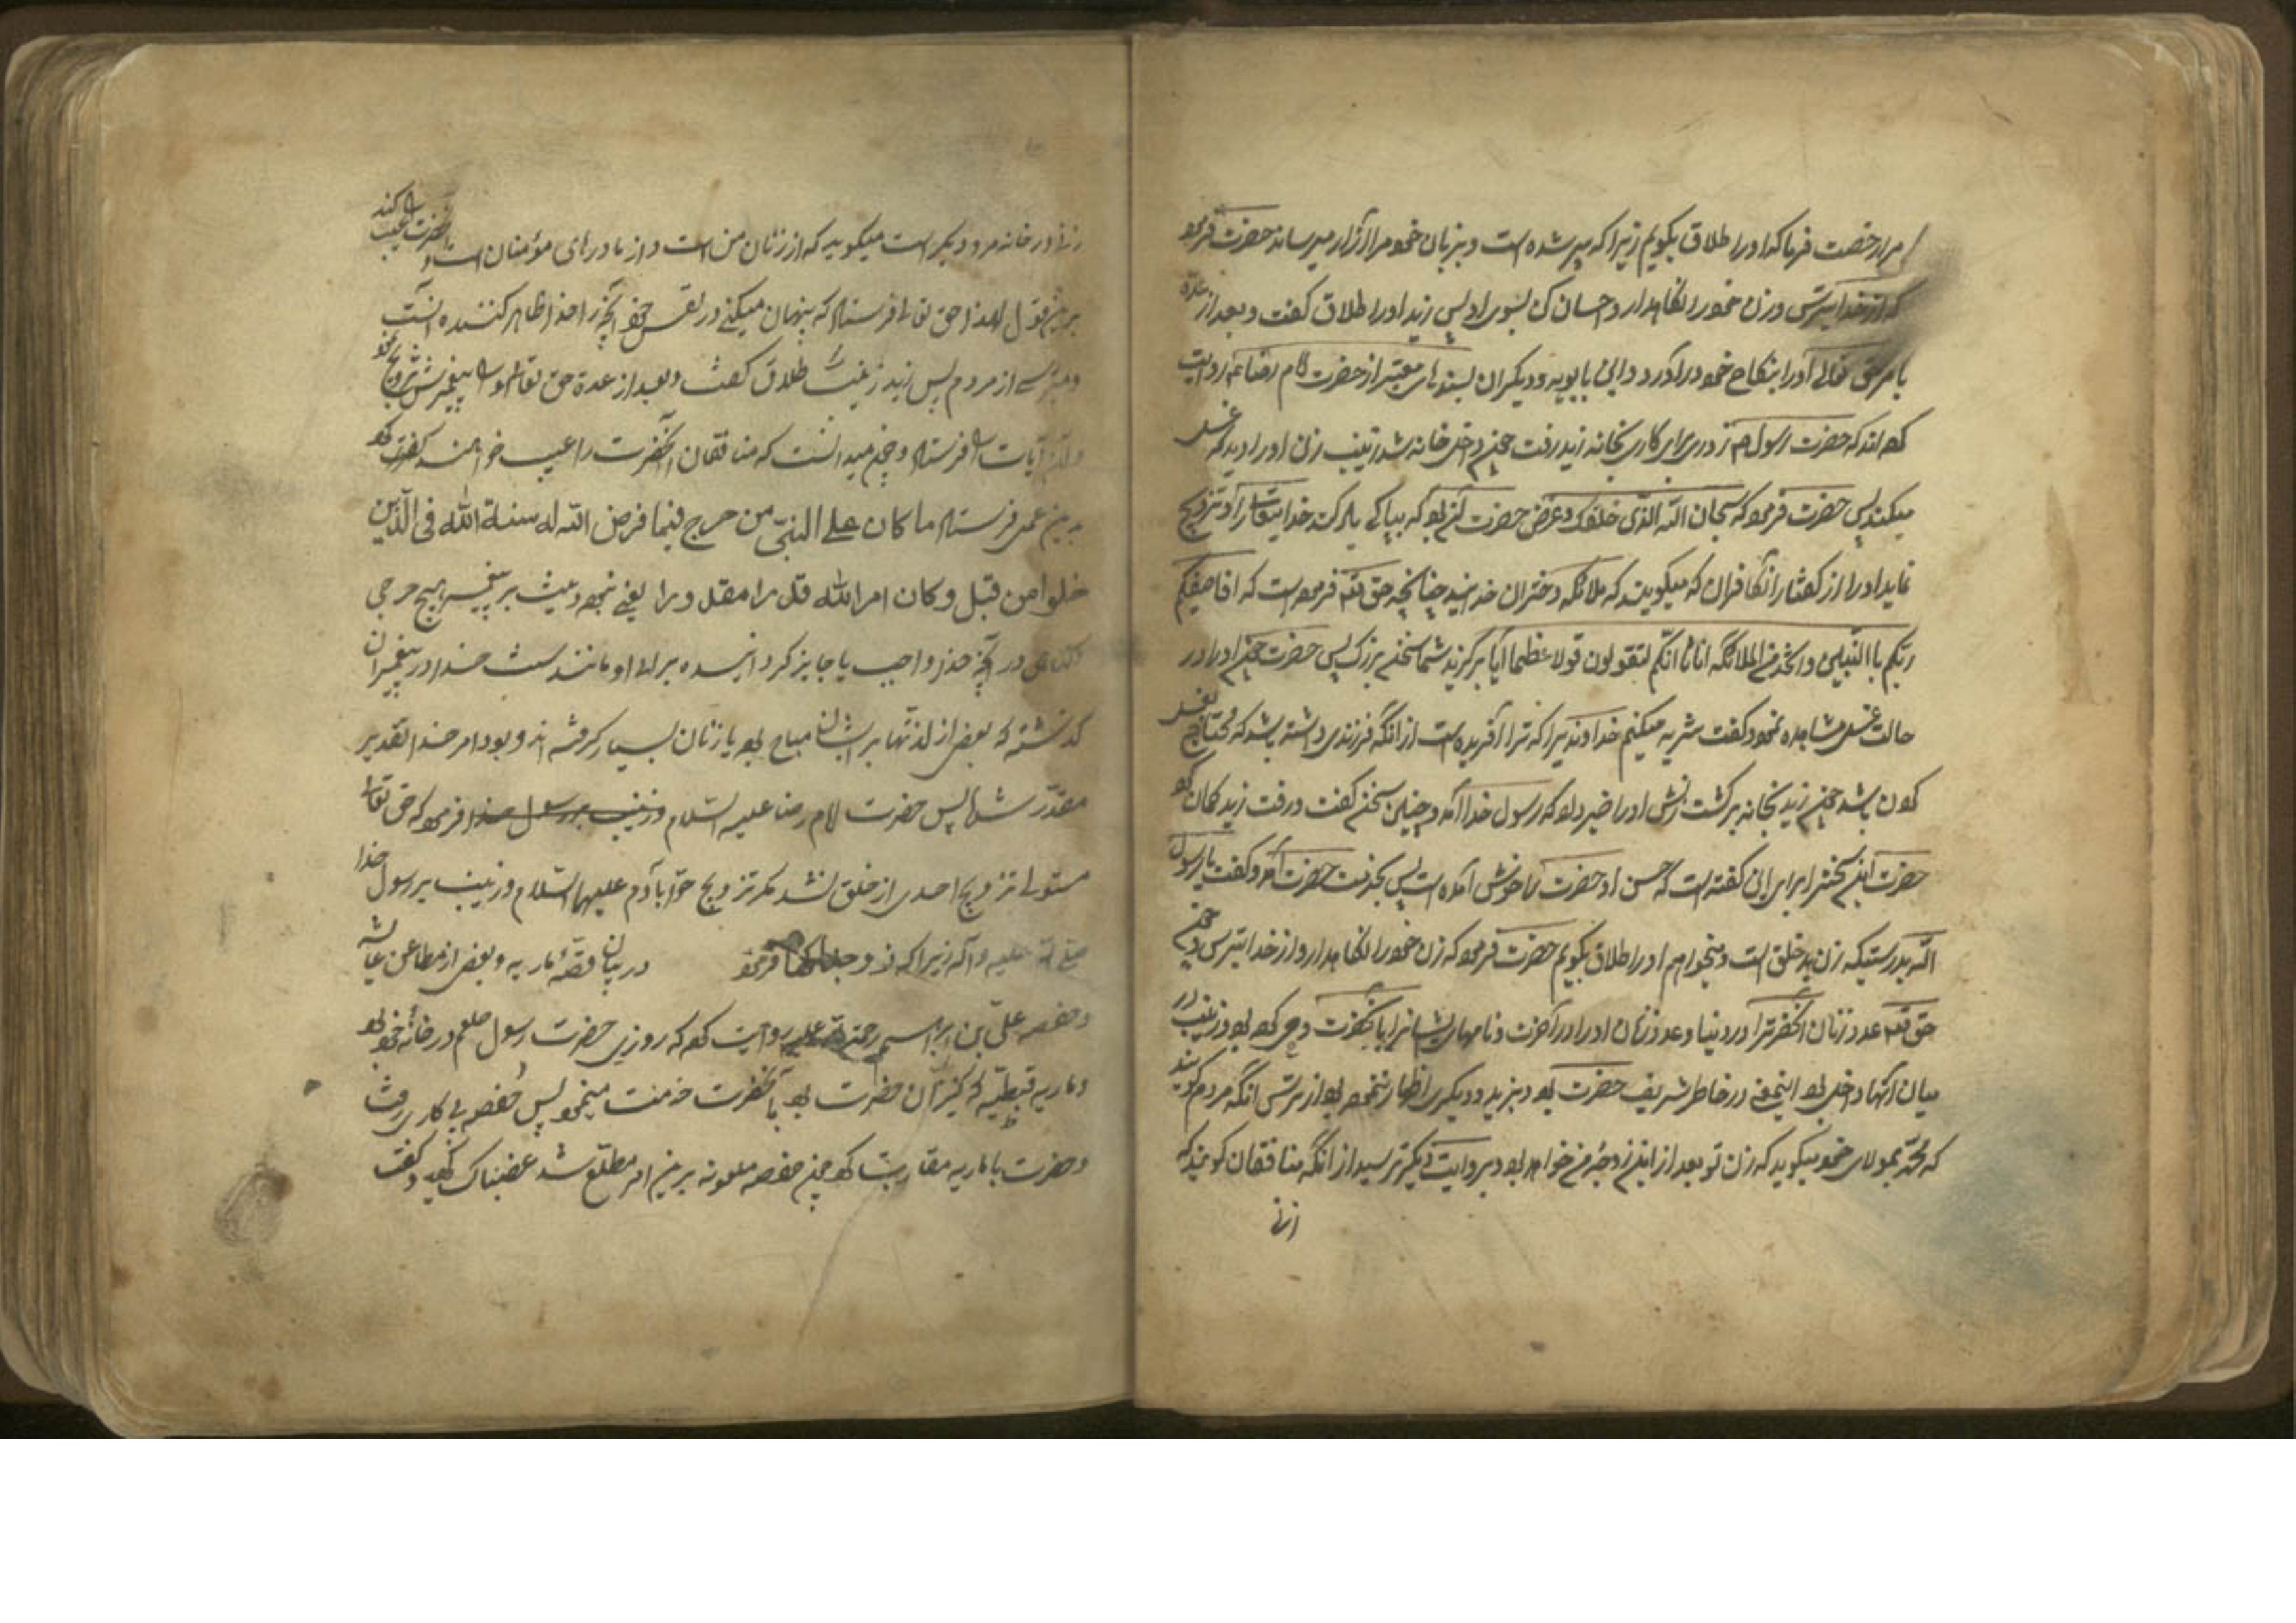 مرا رخصت فرما که او را طلاق بگویم زیرا که پیر شده است و بزبان خود مرا آزار میرساند حضرت فرمود
که از خدا بترس و زن خود را نگاهدار و احسان کن بسوی او پس زید او را طلاق گفت و بعد از عده
بامر حق تعالی او را بنکاح خود درآورد و ابن بابویه و دیگران بسندهای معتبر از حضرت امام رضا روایت
کرده اند که حضرت رسول روزی برای کاری بخانه زید رفت چون داخل خانه شد زینب زن او را دید که غسل
میکند پس حضرت فرمود که سبحان الله الذی خلقک و غرض حضرت آن بود که بپاکی یاد کند خدایتعالی را و تنزیه
نماید او را از گفتار آن کافران که میگویند که ملائکه دختران خدایند چنانچه حق تعالی فرموده است که افاصفیکم
ربکم بالبنین و اتخذ من الملائکه اناثا انکم لتقولون قولا عظیما آیا برگزید شما سخنی بزرک پس حضرت چون او را در
حالت غسل مشاهده نمود گفت تنزیه میکنم خداوندیرا که ترا آفریده است از آنکه فرزندی داشته باشد که محتاج بغسل
کردن باشد چون زید بخانه برگشت زنش او را خبر داد که رسول خدا آمد و چنین سخنی گفت و رفت زید گمان کرد
حضرت این سخن را برای آن گفته است که حسن او حضرت را خوش آمده است پس بخدمت حضرت آمد و گفت یا رسول
الله بدرستیکه زن بد خلق است و میخواهم او را طلاق بگویم حضرت فرمود که زن خود را نگاهدار و از خدا بترس و چون
حق تعالی عدد زنان آنحضرت را در دنیا و عدد زنان او را در آخرت و نامهای ایشانرا بآنحضرت وحی کرده بود و زینب در
میان آنها داخل بود این معنی در خاطر شریف حضرت بود و بزید و دیگری اظهار ننمود از ترس آنکه مردم گویند
که محمد بمولای خود میگوید که زن تو بعد از این زوجه من خواهد بود و بروایت دیگر ترسید از آنکه منافقان گویند که
زنی
زنی در خانه مرد دیگر است میگوید که از زنان من است و از مادرای مؤمنان است و آنحضرت را عیب کنند
برین قول لهذا حق تعالی فرستاد که پنهان میکنی در نفس خود آنچه را خدا ظاهر کننده آنست
و میترسی از مردم پس زید زینب را طلاق گفت و بعد از عده حق تعالی او را به پیغمبرش تزویج کرد
و این آیات را فرستاد و چون میدانست که منافقان آنحضرت را عیب خواهند کرد
برین عمل فرستاد ما کان علی النبی من حرج فیما فرض الله له سنة الله فی الذین
خلوا من قبل و کان امر الله قدرا مقدورا یعنی نبوده و نیست بر پیغمبر هیچ حرجی
در آنچه خدا واجب یا جایز گردانیده برای او مانند سنت خدا در پیغمبران
گذشته که بعضی از لذتها بر ایشان مباح بود یا زنان بسیار گرفته اند و بود امر خدا تقدیر
مقدر شده پس حضرت امام رضا علیه السلام و زینب برسول خدا فرمود که حق تعالی
متولی تزویج احدی از خلق نشد مگر تزویج حوا بآدم علیهما السلام و زینب برسول خدا
صلی الله علیه و آله زیرا که زوجناکها فرمود در بیان قصه ماریه و بعضی از مطاعن عایشه
و حفصه علی بن ابراهیم رحمة الله علیه روایت کرده که روزی حضرت رسول صلعم در خانه خود بود
و ماریه قبطیه که کنیز آن حضرت بود بآنحضرت خدمت مینمود پس حفصه پی کاری رفت
و حضرت با ماریه مقاربت کرد چون حفصه ملعونه برین امر مطلع شد غضبناک گردید و گفت